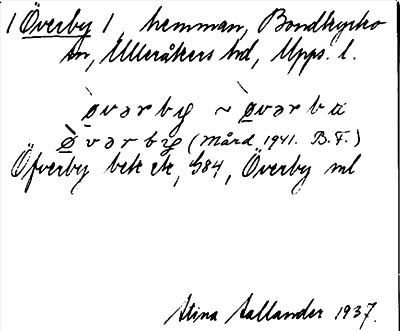 1 Överby 1, hemman, Bondkyrko
sn, Ulleråkers hd, Upps. l.
ø̀vərby ~ ø̀vərbä
ø̀vərby (Mård 1941. B.F.)
Öfverby bek ek, G84, Överby ml
Stina Aallander 1937.